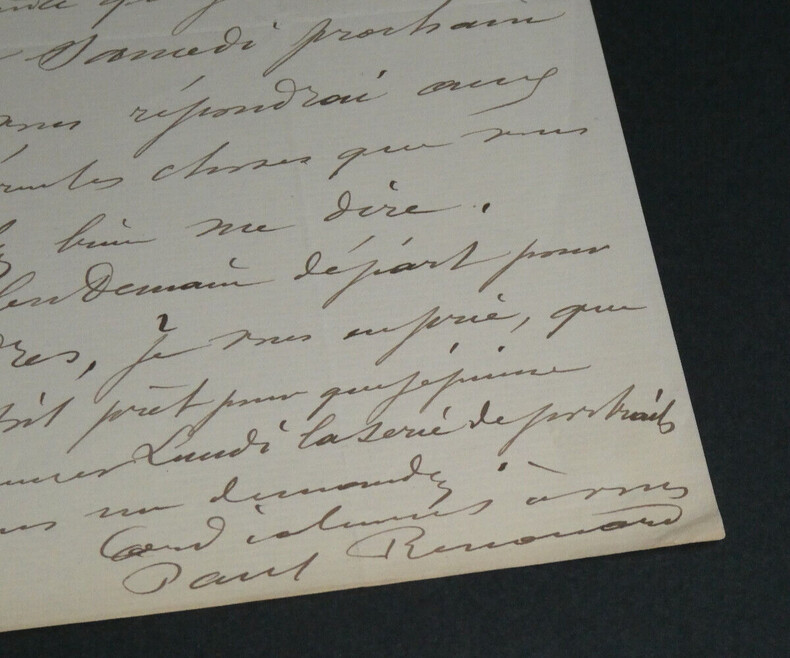 Samedi prochain
vous répondrai aux
choses que vous
bien me dire.
lendemain départ pour
dres, je vous en prie, que
soit prêt pour que je puisse
Lundi la serie de portraits
me demandez
Cordialement à vous
Paul Renouard